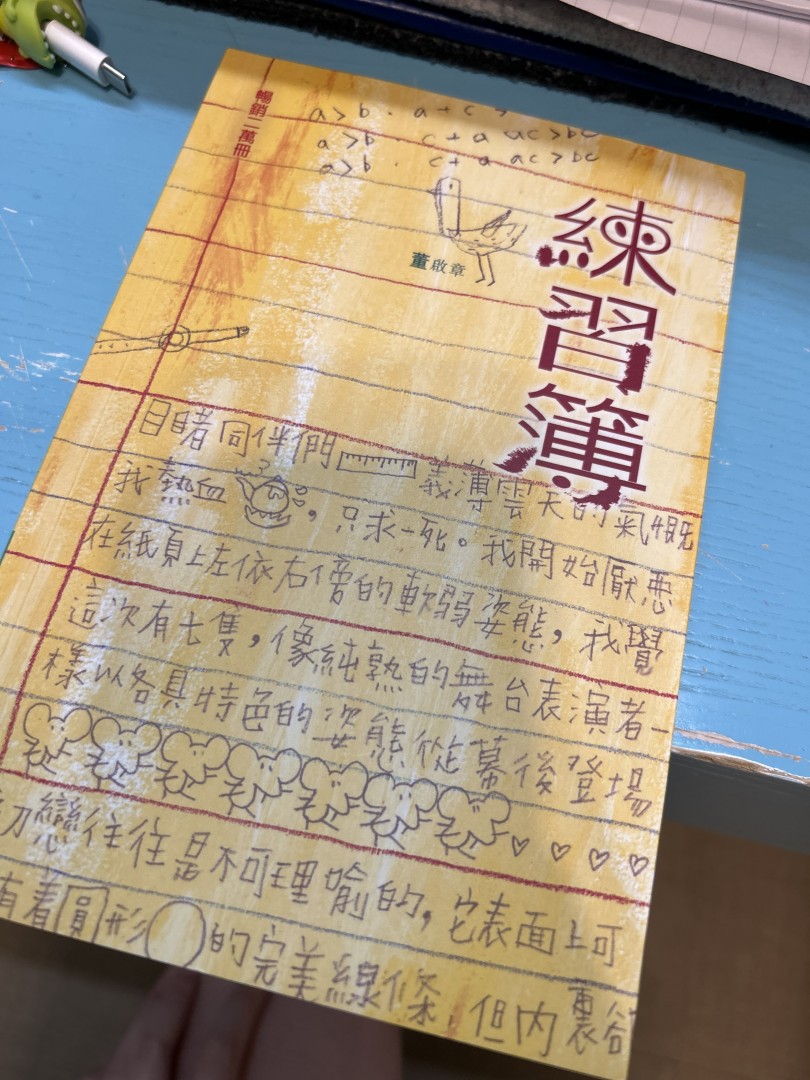 暢銷二萬冊
a>b · a+c >
a>b c+a ac>bc
a>b · c+a ac>bc
練習簿
董啟章
目睹同伴們 義薄雲天的氣慨
我熱血，只求一死。我開始厭惡
在紙頁上左依右傍的軟弱姿態，我覺
這次有七隻，像純熟的舞台表演者一
樣以各具特色的姿態從幕後登場
初戀往往是不可理喻的，它表面上可
有着圓形 的完美線條，但內裏